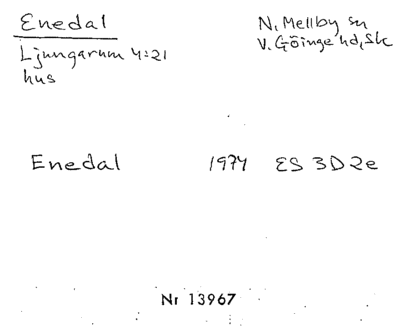 Enedal
N. Mellby sn
Ljungarum 4:21
V. Göinge hd, Sk
hus
Enedal 1974 ES 3D2e
Nr 13967